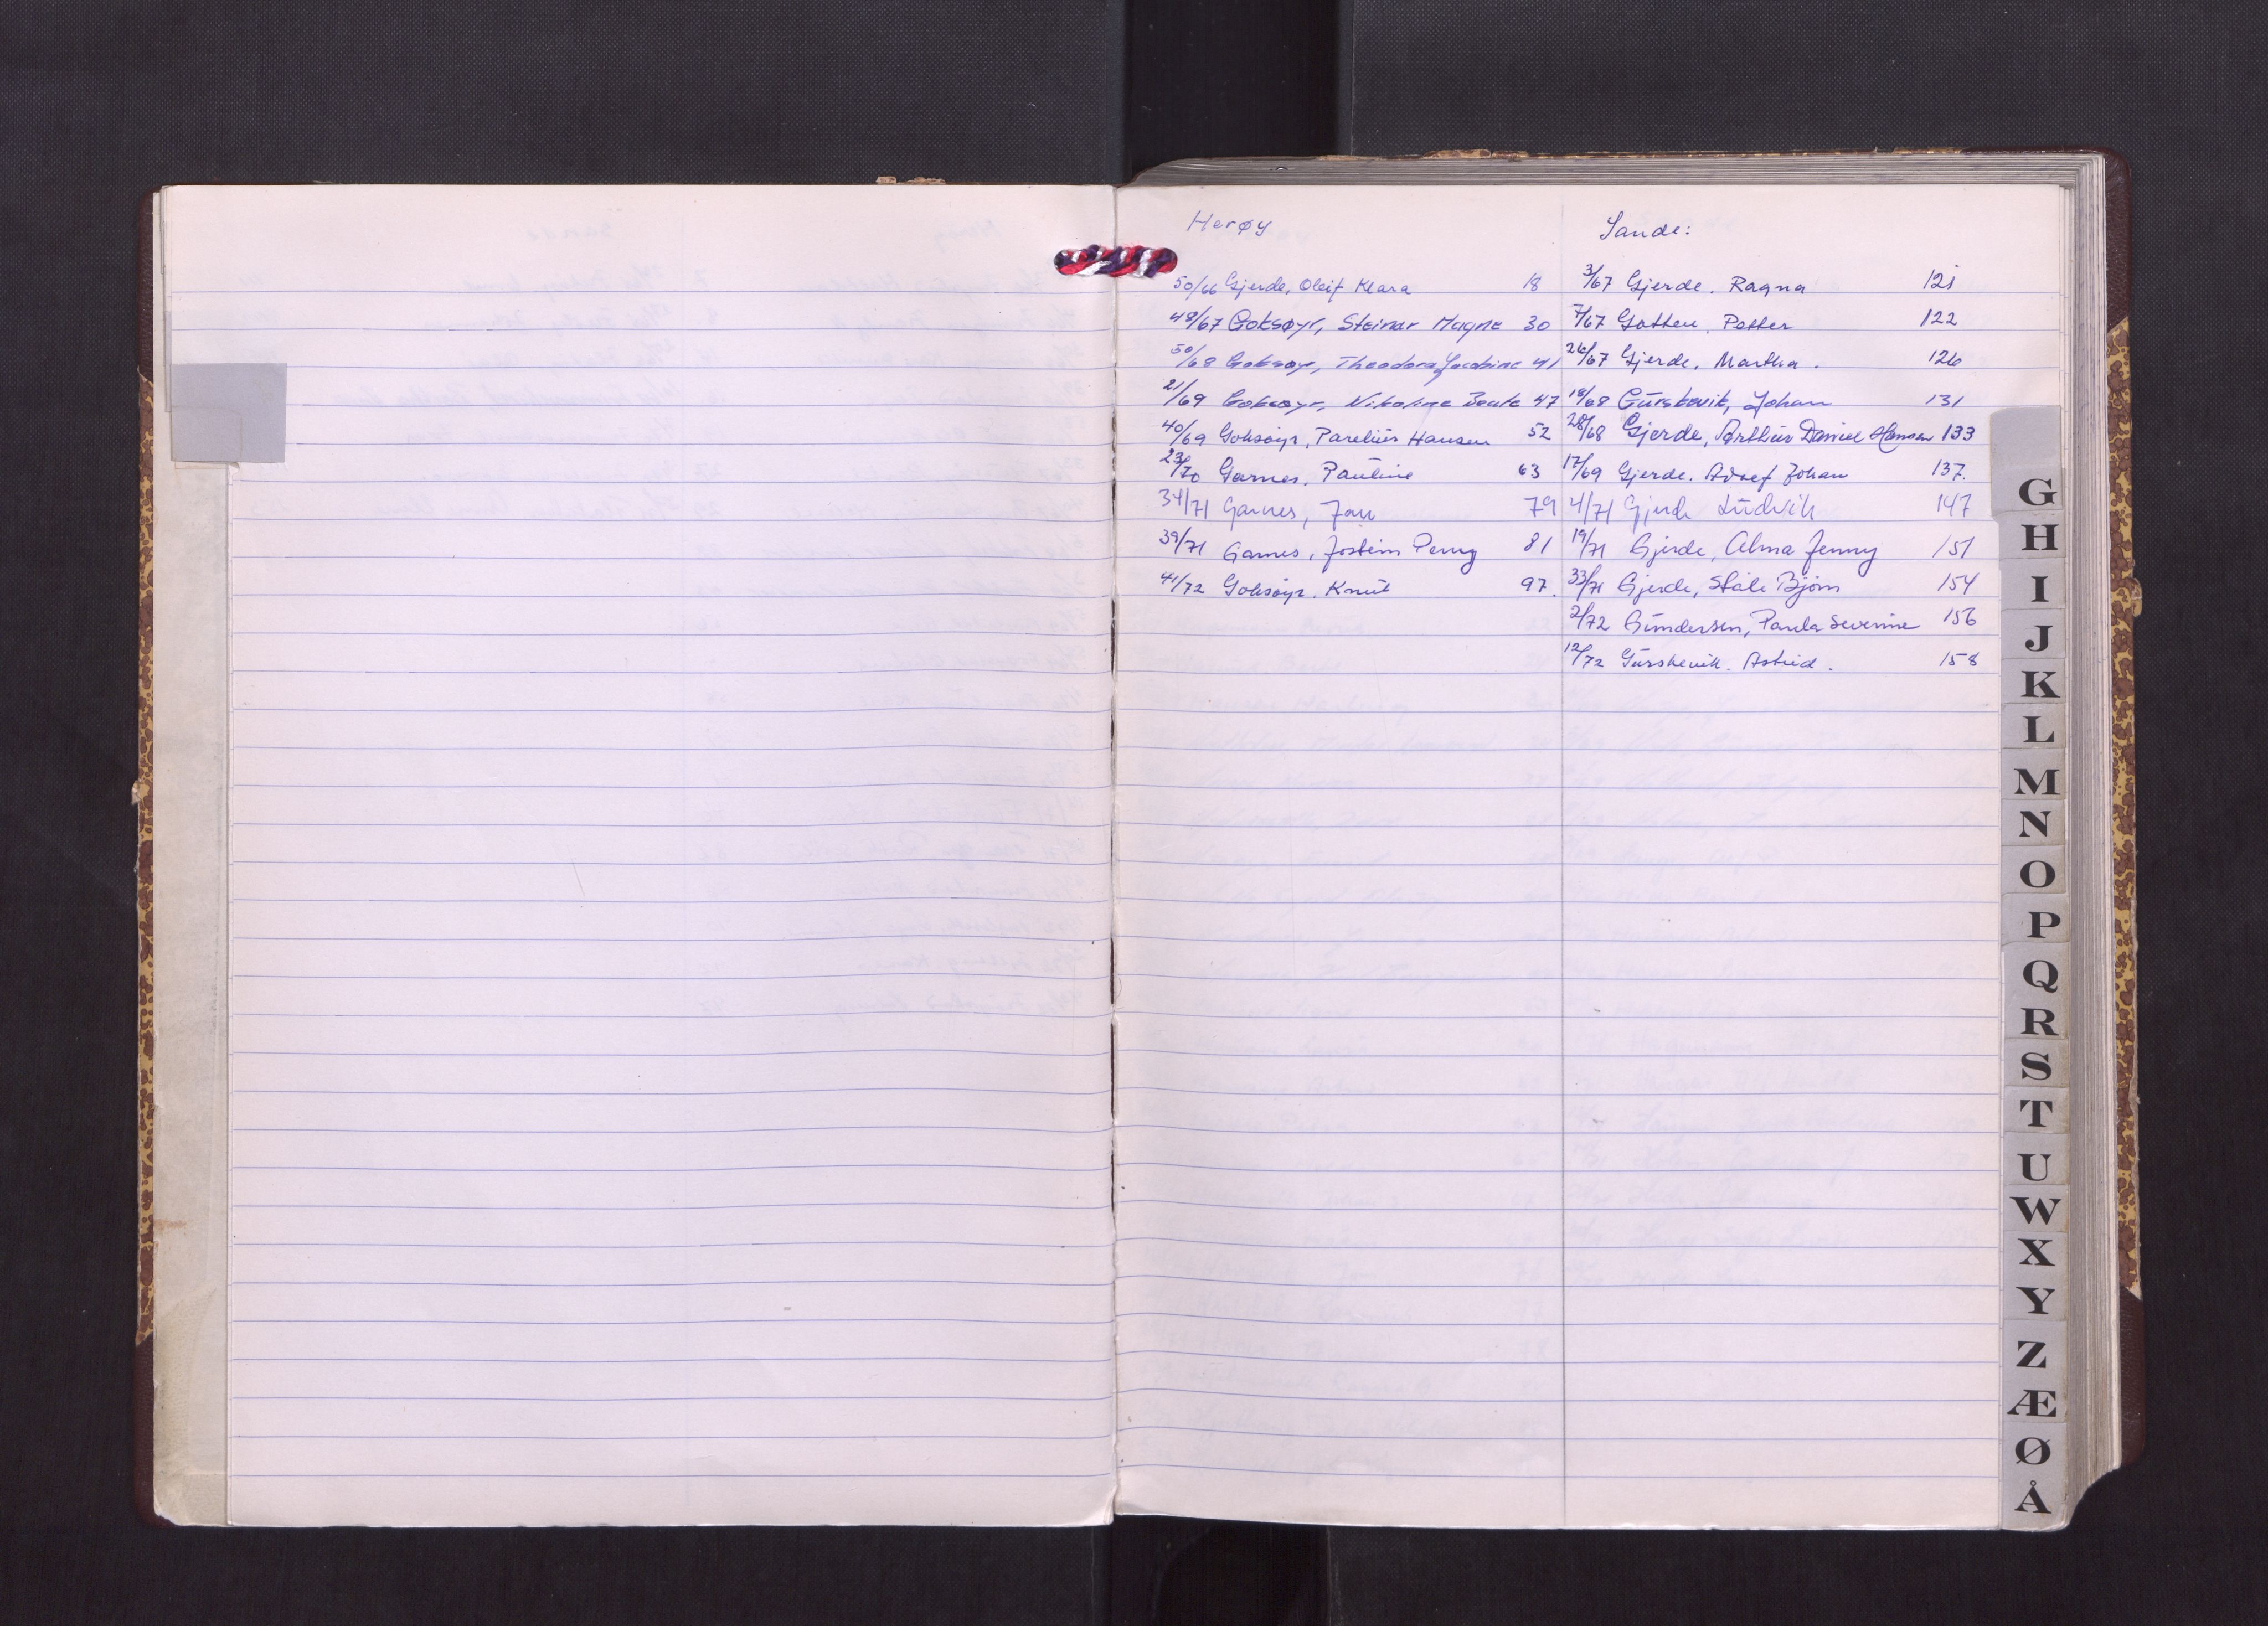 Herøy
50/66 Gjerde, Oleif Klara 18
48/67 Goksøyr, Steinar Magne 30
50/68 Goksøyr, Theodora Jacobine 41
21/69 Goksøyr, Nikoline Beate 47
40/69 Goksøyr, Parelius Hansen 52
23/70 Garnes, Pauline 63
34/71 Garnes, Jan 79
39/71 Garnes, Jostein Perny 81
41/72 Goksøyr, Knut 97.
Sande:
3/67 Gjerde, Ragna 121
7/67 Gotten, Petter 122
26/67 Gjerde, Martha. 126
18/68 Gurskevik, Johan 131
28/68 Gjerde, Arthur Daniel Hansen 133
17/69 Gjerde, Adolf Johan 137.
4/71 Gjerde Ludvik 147
19/71 Gjerde, Alma Jenny 151
33/71 Gjerde, Ståle Bjørn 154
2/72 Gundersen, Paula Severine 156
12/72 Gurskevik. Astrid. 158
G
H
I
J
K
L
M
N
O
P
Q
R
S
T
U
W
X
Y
Z
Æ
Ø
Å